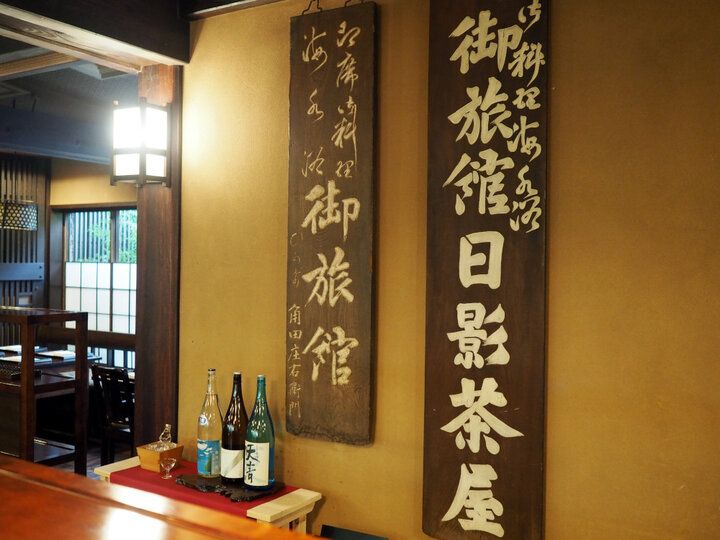 御料理海水浴
御旅館日影茶屋
即席御料理
海水浴
御旅館
角田庄右衛門
天青